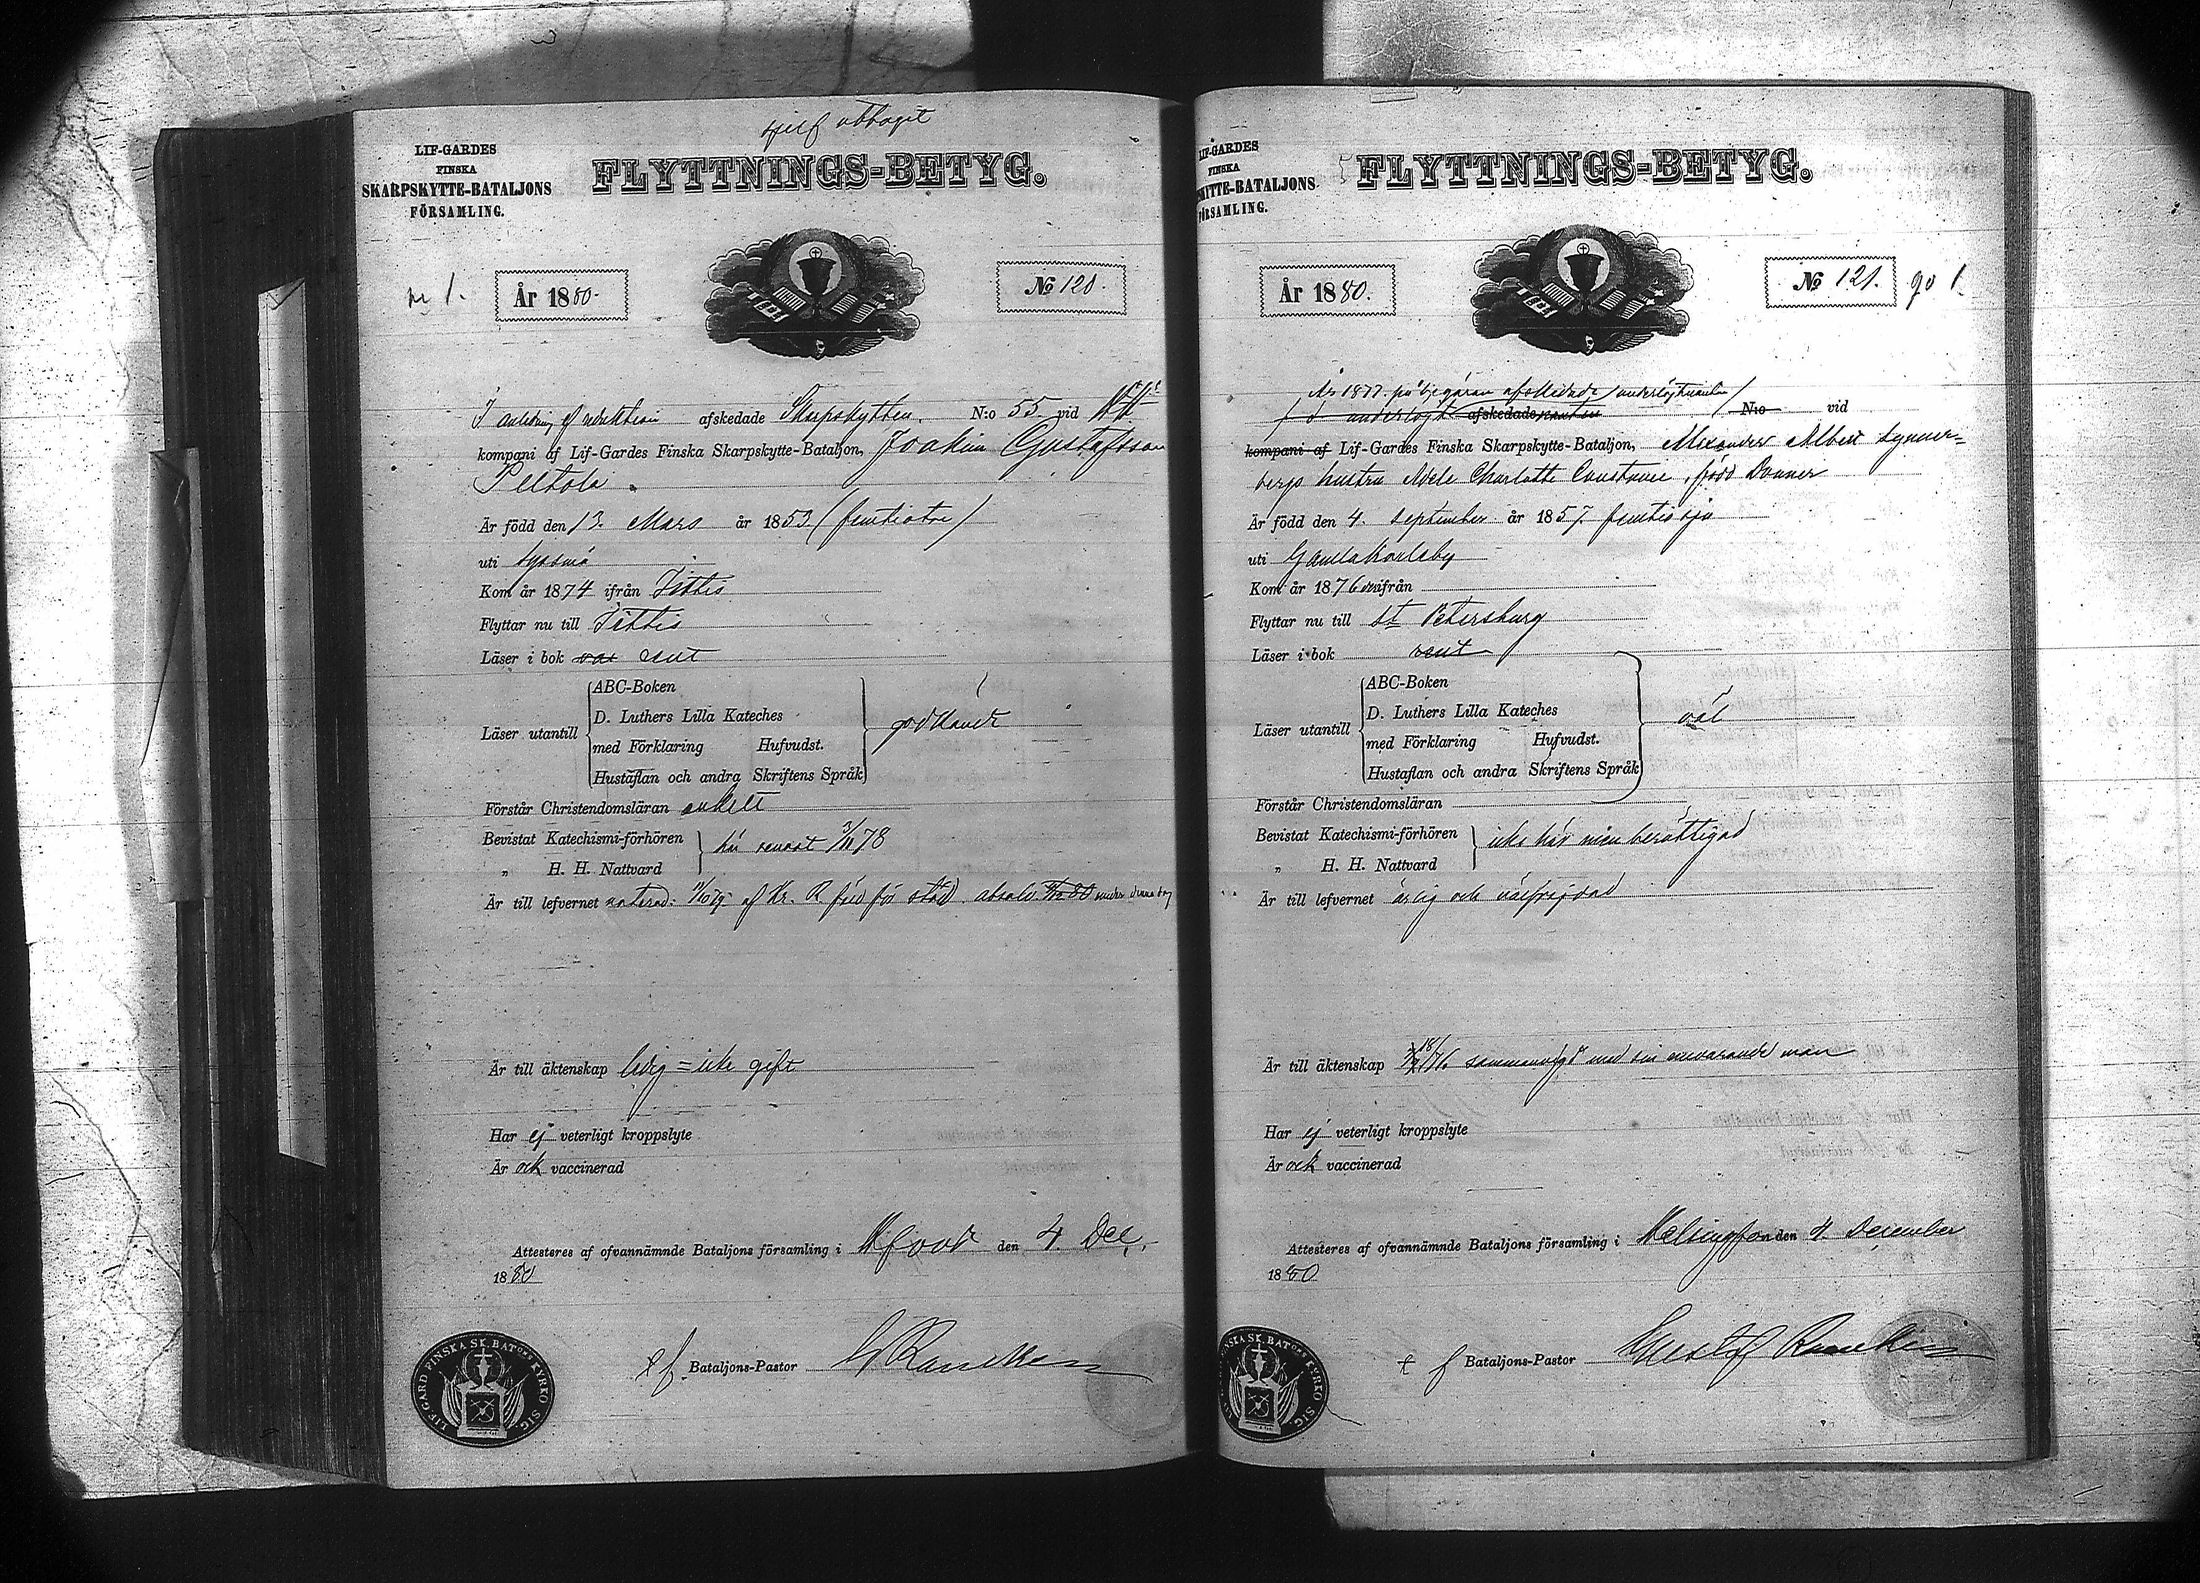 sjelf uttagit
LIF-GARDES
FINSKA
SKARPSKYTTE-BATALJONS
FÖRSAMLING.
FLYTTNINGS-BETYG.
År 1880.
No 120
I anledning af afskedade Skarpskytten N:o 55 vid
kompani af Lif-Gardes Finska Skarpskytte-Bataljon, Joakim Gustafsson
Peltola
Är född den 13 Mars år 1853 (femtiotre)
uti Sysmä
Kom år 1874 ifrån Iittis
Flyttar nu till Iittis
Läser i bok rent
Läser utantill
ABC-Boken
D. Luthers Lilla Kateches
med Förklaring Hufvudst.
Hustaflan och andra Skriftens Språk
godkändt
Förstår Christendomsläran enkelt
Bevistat Katechismi-förhören
„ H. H. Nattvard
här senast 78
Är till lefvernet noterad: af Kr. R för stöld
Är till äktenskap ledig = icke gift
Har ej veterligt kroppslyte
Är ock vaccinerad
Attesteres af ofvannämnde Bataljons församling i Hfors den 4. Dec.
1880
t f. Bataljons-Pastor G Rancken
LIF. GARD. FINSKA SK. BAT:ONS KYRKO SIG.
LIF-GARDES
FINSKA
SKYTTE-BATALJONS
FÖRSAMLING.
FLYTTNINGS-BETYG.
År 1880.
No 121.
År 1877 på begäran afskedade underlöjtnanten
afskedade N:o vid
kompani af Lif-Gardes Finska Skarpskytte-Bataljon, Alexander Albert Synner=
bergs hustru Adele Charlotte Constance, född Donner
Är född den 4. September år 1857. femtiosju
uti Gamlakarleby
Kom år 1876 ifrån
Flyttar nu till St Petersburg
Läser i bok rent
Läser utantill
ABC-Boken
D. Luthers Lilla Kateches
med Förklaring Hufvudst.
Hustaflan och andra Skriftens Språk
väl
Förstår Christendomsläran
Bevistat Katechismi-förhören
„ H. H. Nattvard
icke här men berättigad
Är till lefvernet ärlig och välfrejdad
Är till äktenskap 76 sammanvigd med sin nuvarande man
Har ej veterligt kroppslyte
Är ock vaccinerad
Attesteres af ofvannämnde Bataljons församling i Helsingfors den 4. December
1880
t f Bataljons-Pastor Gustaf Rancken
FINSKA SK. BAT:ONS KYRKO SIG.